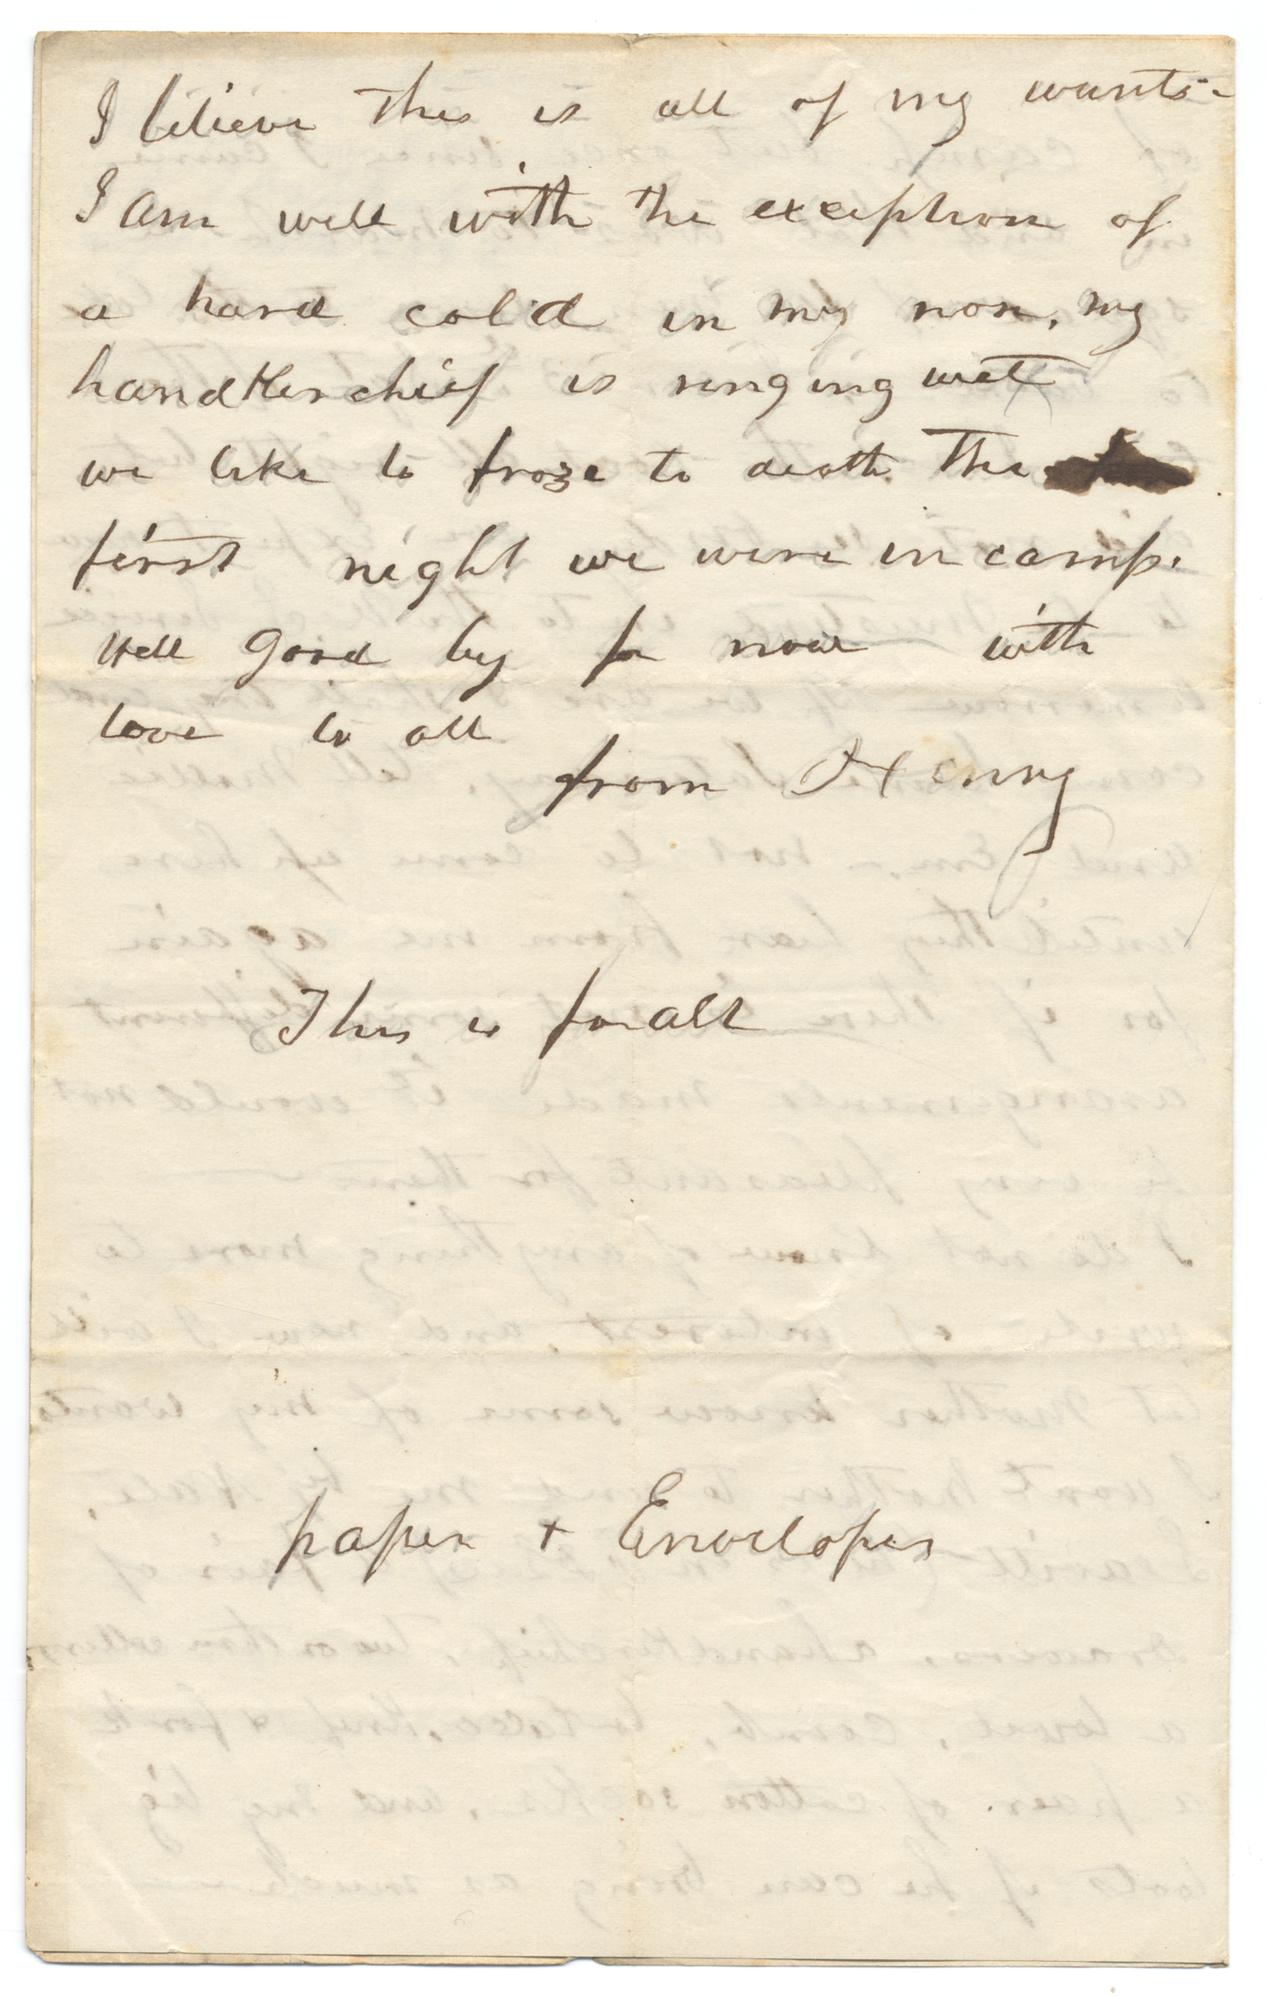 I believe this is all of my wants-
I am well with the exception of
a hard cold in my nose, my
handkerchief is ringing wet
we like to froze to death the
first night we were in camp.
Well good by for now with
love to all
from Henry
This is for all
paper + Envelopes